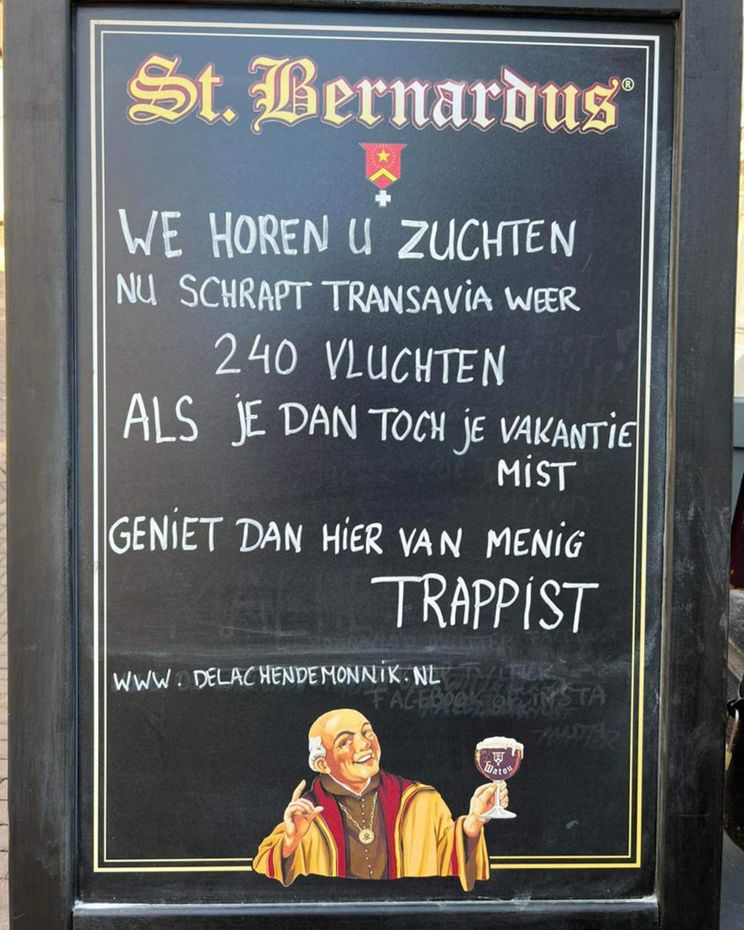 St. Bernardus®
WE HOREN U ZUCHTEN
NU SCHRAPT TRANSAVIA WEER
240 VLUCHTEN
ALS JE DAN TOCH JE VAKANTIE
MIST
GENIET DAN HIER VAN MENIG
TRAPPIST
WWW.DELACHENDEMONNIK.NL
FACEBOOK OF INSTA
Watou